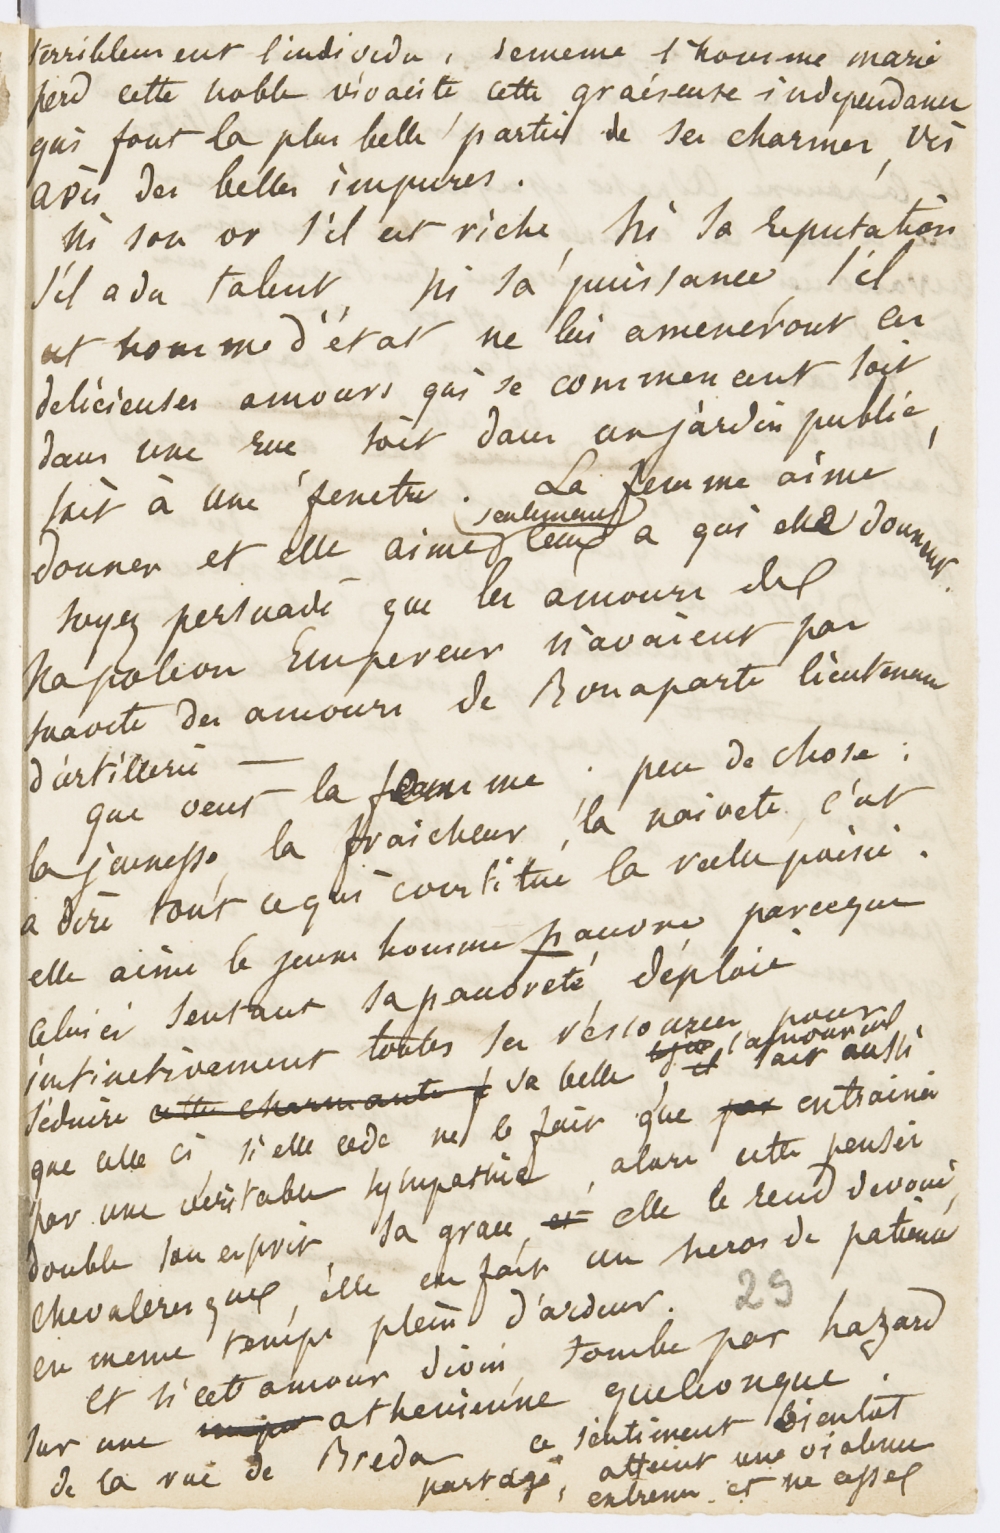 terriblement l'individu, dememe l'homme marié
perd cette noble vivacité cette gracieuse independance
qui font la plus belle partie de ses charmes, vis
avis des belles impures.
Ni son or s'il est riche, Ni sa reputation
s'il a du talent, Ni sa puissance, s'il
est homme d'état ne lui ameneront ces
delicieuses amours qui se commencent soit
dans une rue soit dans un jardin public,
soit à une fenetre. La femme aime
donner et elle aime seulement ceux a qui elle donne
soyez persuadé que les amours de
Napoleon Empereur n'avaient pas
suavite des amours de Bonaparte lieutenant
d'artillerie —
que veut la femme. peu de chose:
la jeunesse, la fraicheur, la naivete, c'est
a dire tout ce qui constitue la poésie.
elle aime le jeune homme pauvre, parceque
celui ci sentant sa pauvreté, déploie
instinctivement toutes ses ressources pour
séduire cette charmante sa belle l'amour il sait aussi
que celle ci, si elle cede ne le fait que par entrainée
par une veritable sympathie, alors cette pensée
double son esprit sa grace, et elle le rend devoué,
chevaleresque, elle en fait un heros de patience
en meme temps plein d'ardeur.
29
et si cet amour divin, tombe par hazard
sur une athenienne quelconque.
de la rue de Breda ce sentiment bientot
partagé, atteint une violence
extreme et ne cesse